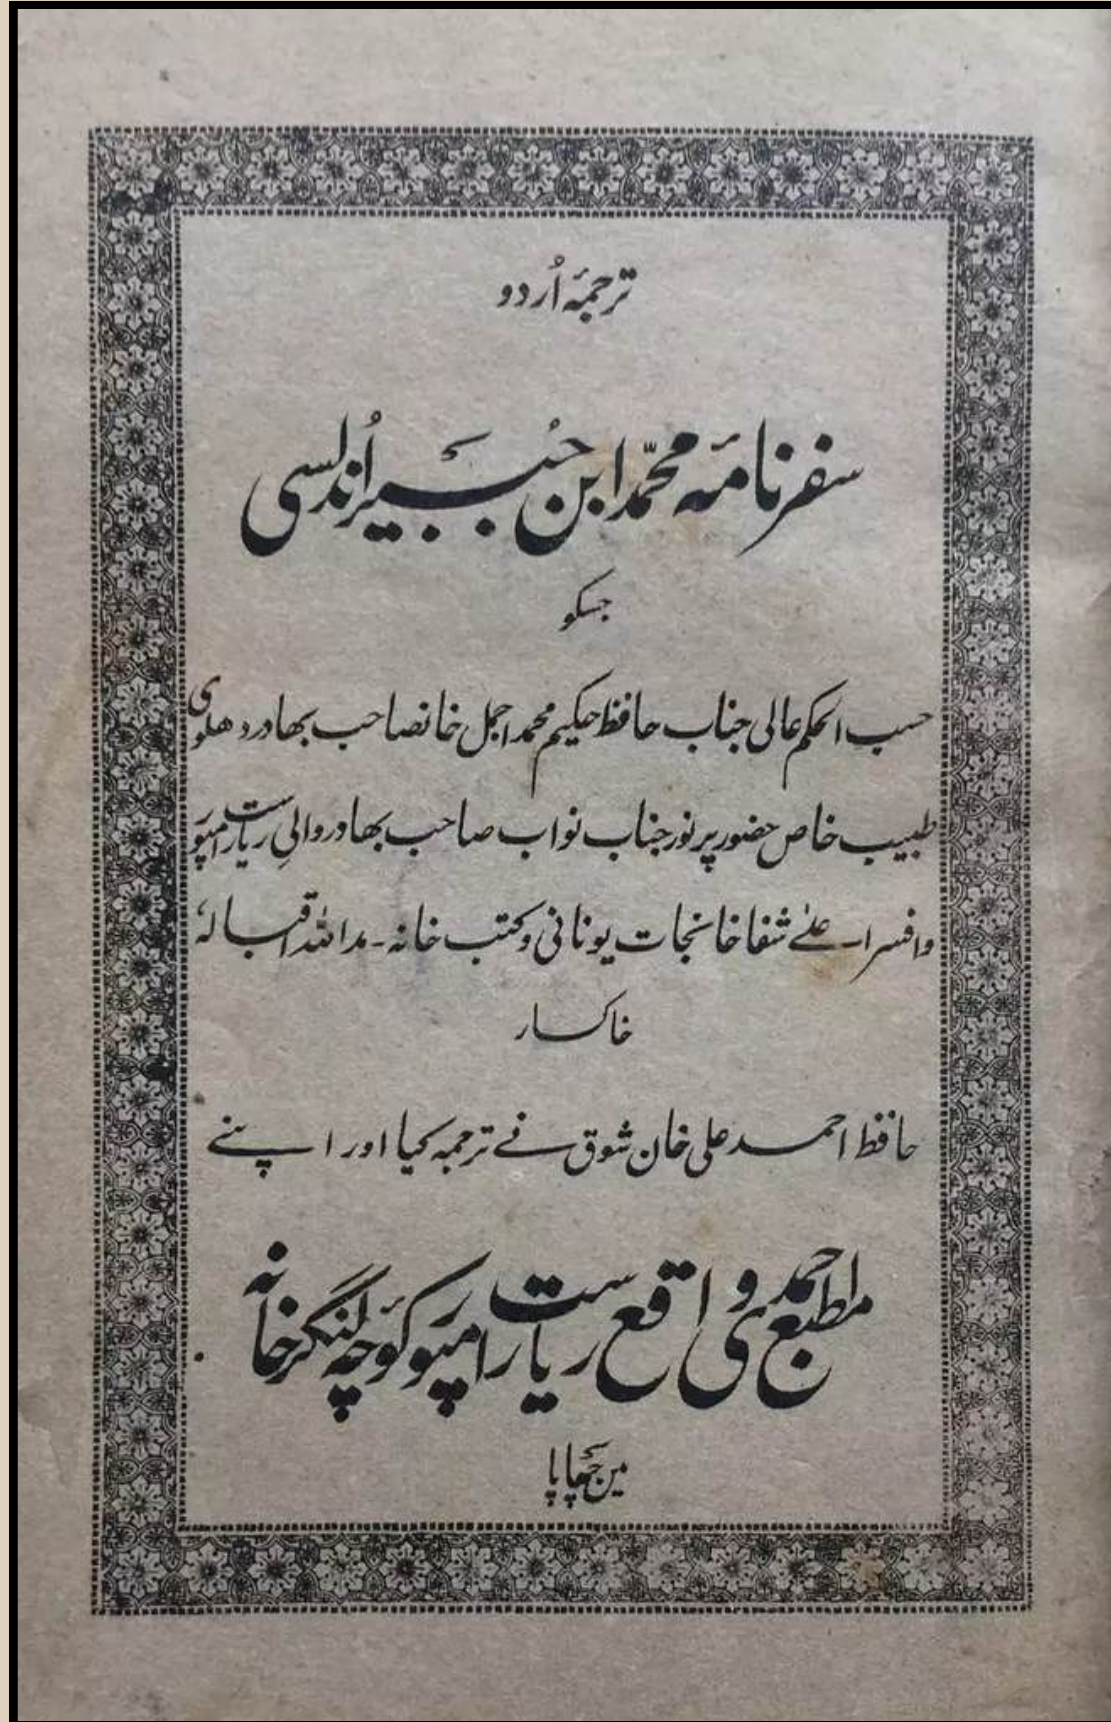 ترجمۂ اُردو
سفرنامۂ محمّد ابن جُبَیر اُندلسی
جسکو
حسب الحکم عالی جناب حافظ حکیم محمد اجمل خانصاحب بھادر دھلوی
طبیب خاص حضور پرنور جناب نواب صاحب بھادر والیِ ریاست رامپور
وافسر اعلےٰ شفاخانجات یونانی وکتب خانہ۔ مداللہ اقبالہٗ
خاکسار
حافظ احمد علی خان شوق نے ترجمہ کیا اور اپنے
مطبع احمدی واقع ریاست رامپور کوچۂ لنگر خانہ
مین چھاپا